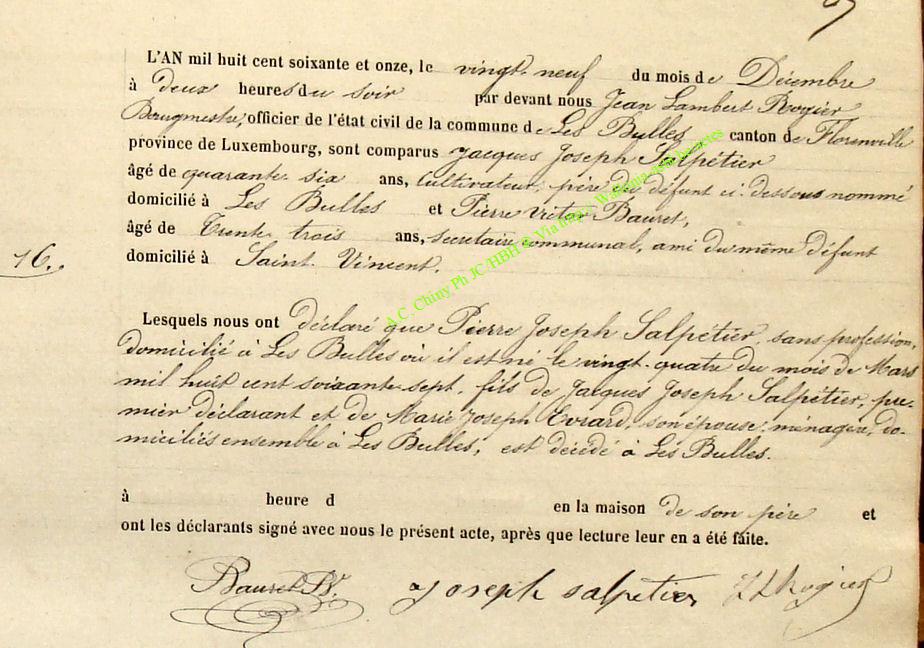 L'AN mil huit cent soixante et onze, le vingt neuf du mois de Décembre
à deux heures du soir par devant nous Jean Lambert Rogier
Bourgmestre, officier de l'état civil de la commune de Les Bulles canton de Florenville
province de Luxembourg, sont comparus Jacques Joseph Salpétier
âgé de quarante-six ans, Cultivateur, père du défunt ci-dessous nommé
domicilié à Les Bulles et Pierre Victor Bauret,
âgé de Trente trois ans, secrétaire communal, ami du même défunt
16. domicilié à Saint Vincent.
Lesquels nous ont déclaré que Pierre Joseph Salpétier, sans profession,
domicilié à Les Bulles où il est né le vingt-quatre du mois de Mars
mil huit cent soixante-sept, fils de Jacques Joseph Salpétier, pre-
mier déclarant et de Marie Joseph Evrard, son épouse, ménagère, do-
miciliés ensemble à Les Bulles, est décédé à Les Bulles.
à heure d en la maison de son père et
ont les déclarants signé avec nous le présent acte, après que lecture leur en a été faite.
Bauret Pr. Joseph Salpetier JLRogier
A.C. Chiny Ph JC HBH © Via